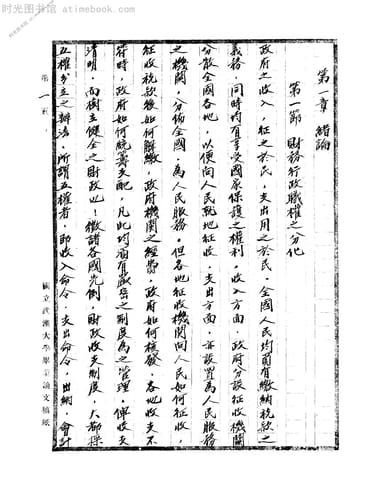 时光图书馆 - atimebook.com
第一章 緒論
第一節 財務行政職權之分化
政府之收入,征之於民,支出用之於民,全國人民均有繳納稅欵之
義務,同時均有享受國家保護之權利,收入方面,政府分設征收機關
分散全國各地,以便向人民就地征收,支出方面,亦設置為人民服務
之機關,分佈全國,為人民服務,但各地征收機關向人民如何征收,
征收稅欵後如何解繳,政府機關之經費,政府如何核發,各地收支不
符時,政府如何統籌支配,凡此均須有嚴密之制度為之管理,俾收支
清明,而樹立健全之財政也!徵諸各國先例,財政收支制度,大都採
五權分立之辦法,所謂五權者,即收入命令,支出命令,出納,會計
第一頁
國立武漢大學畢業論文稿紙
时光图书馆 - atimebook.com